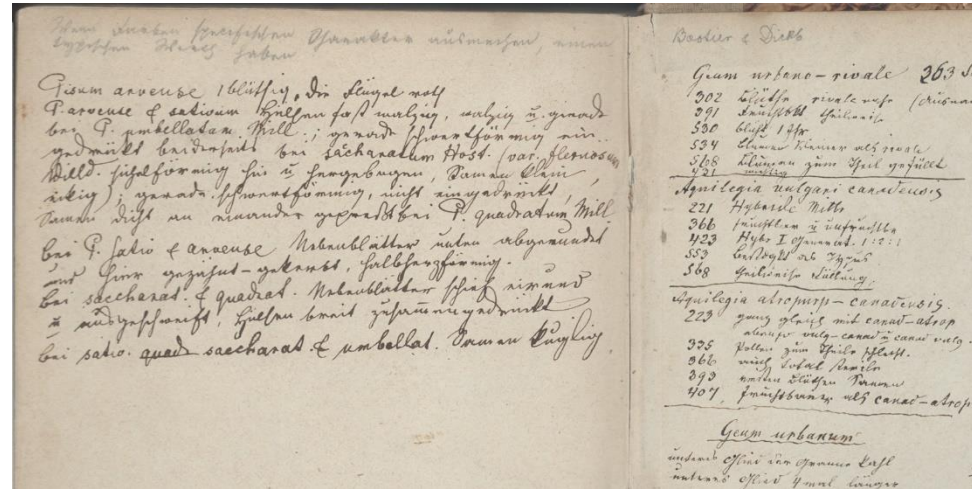 Wenn Farben specifischen Charakter ausmachen, einen
typischen Werth haben
Pisum arvense 1blüthig, die Flügel roth
P. arvense & sativum Hülsen fast walzig, walzig u. gerade
bei P. umbellatum Mill.; gerade schwertförmig ein
gedrückt beiderseits bei sacharatum Host. (var. flexuosum
Willd. sichelförmig hin u hergebogen, Samen klein,
eckig; gerade schwertförmig, nicht eingedrückt,
Samen dicht an einander gepreßt bei P. quadratum Mill
bei P. sativ & arvense Nebenblätter unten abgerundet
und hier gezähnt-gekerbt, halbherzförmig.
bei saccharat. & quadrat. Nebenblätter schief eirund
u ausgeschweift, Hülsen breit zusammengedrückt
bei sativ. quad saccharat & umbellat. Samen kuglig
Geum urbano-rivale 263
302 Blüthe rivale
391 Fruchtbkt theilweise
530 blüht 1 Jhr
534 kleiner als rivale
568 Blumen zum Theil gefüllt
421
Aquilegia vulgari canadensis
221 Hybride Mitte
366 u unfruchtbar
423 Hybr I Generat. 1:2:1
553 als Typus
568 theilweise Füllung
Aquilegia atropurp-canadensis.
223 ganz gleich mit canad-atrop
vulg-canad u canad vulg.
335 Pollen zum Theile schlecht.
366 auch total steril
393 Blüthen Samen
407 fruchtbarer als canad-atrop
Geum urbanum
unteres Glied der Granne kahl
unteres Glied 4 mal länger